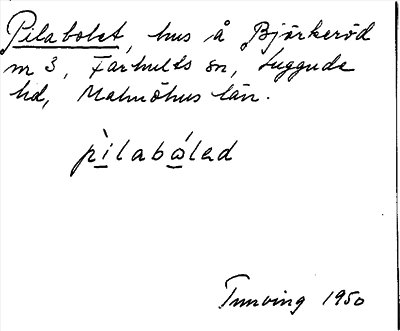 Pilabolet, hus å Björkeröd
m 3, Farhults sn, Luggude
hd, Malmöhus län.
pìlabɷ́lad
Tunving 1950